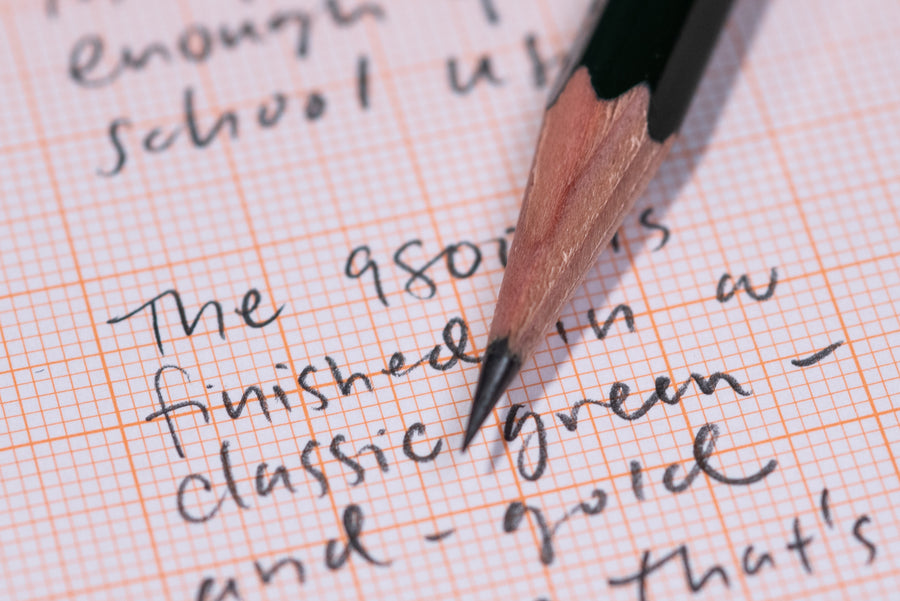 enough
school
The is
finished in a
classic green -
and - gold
that's